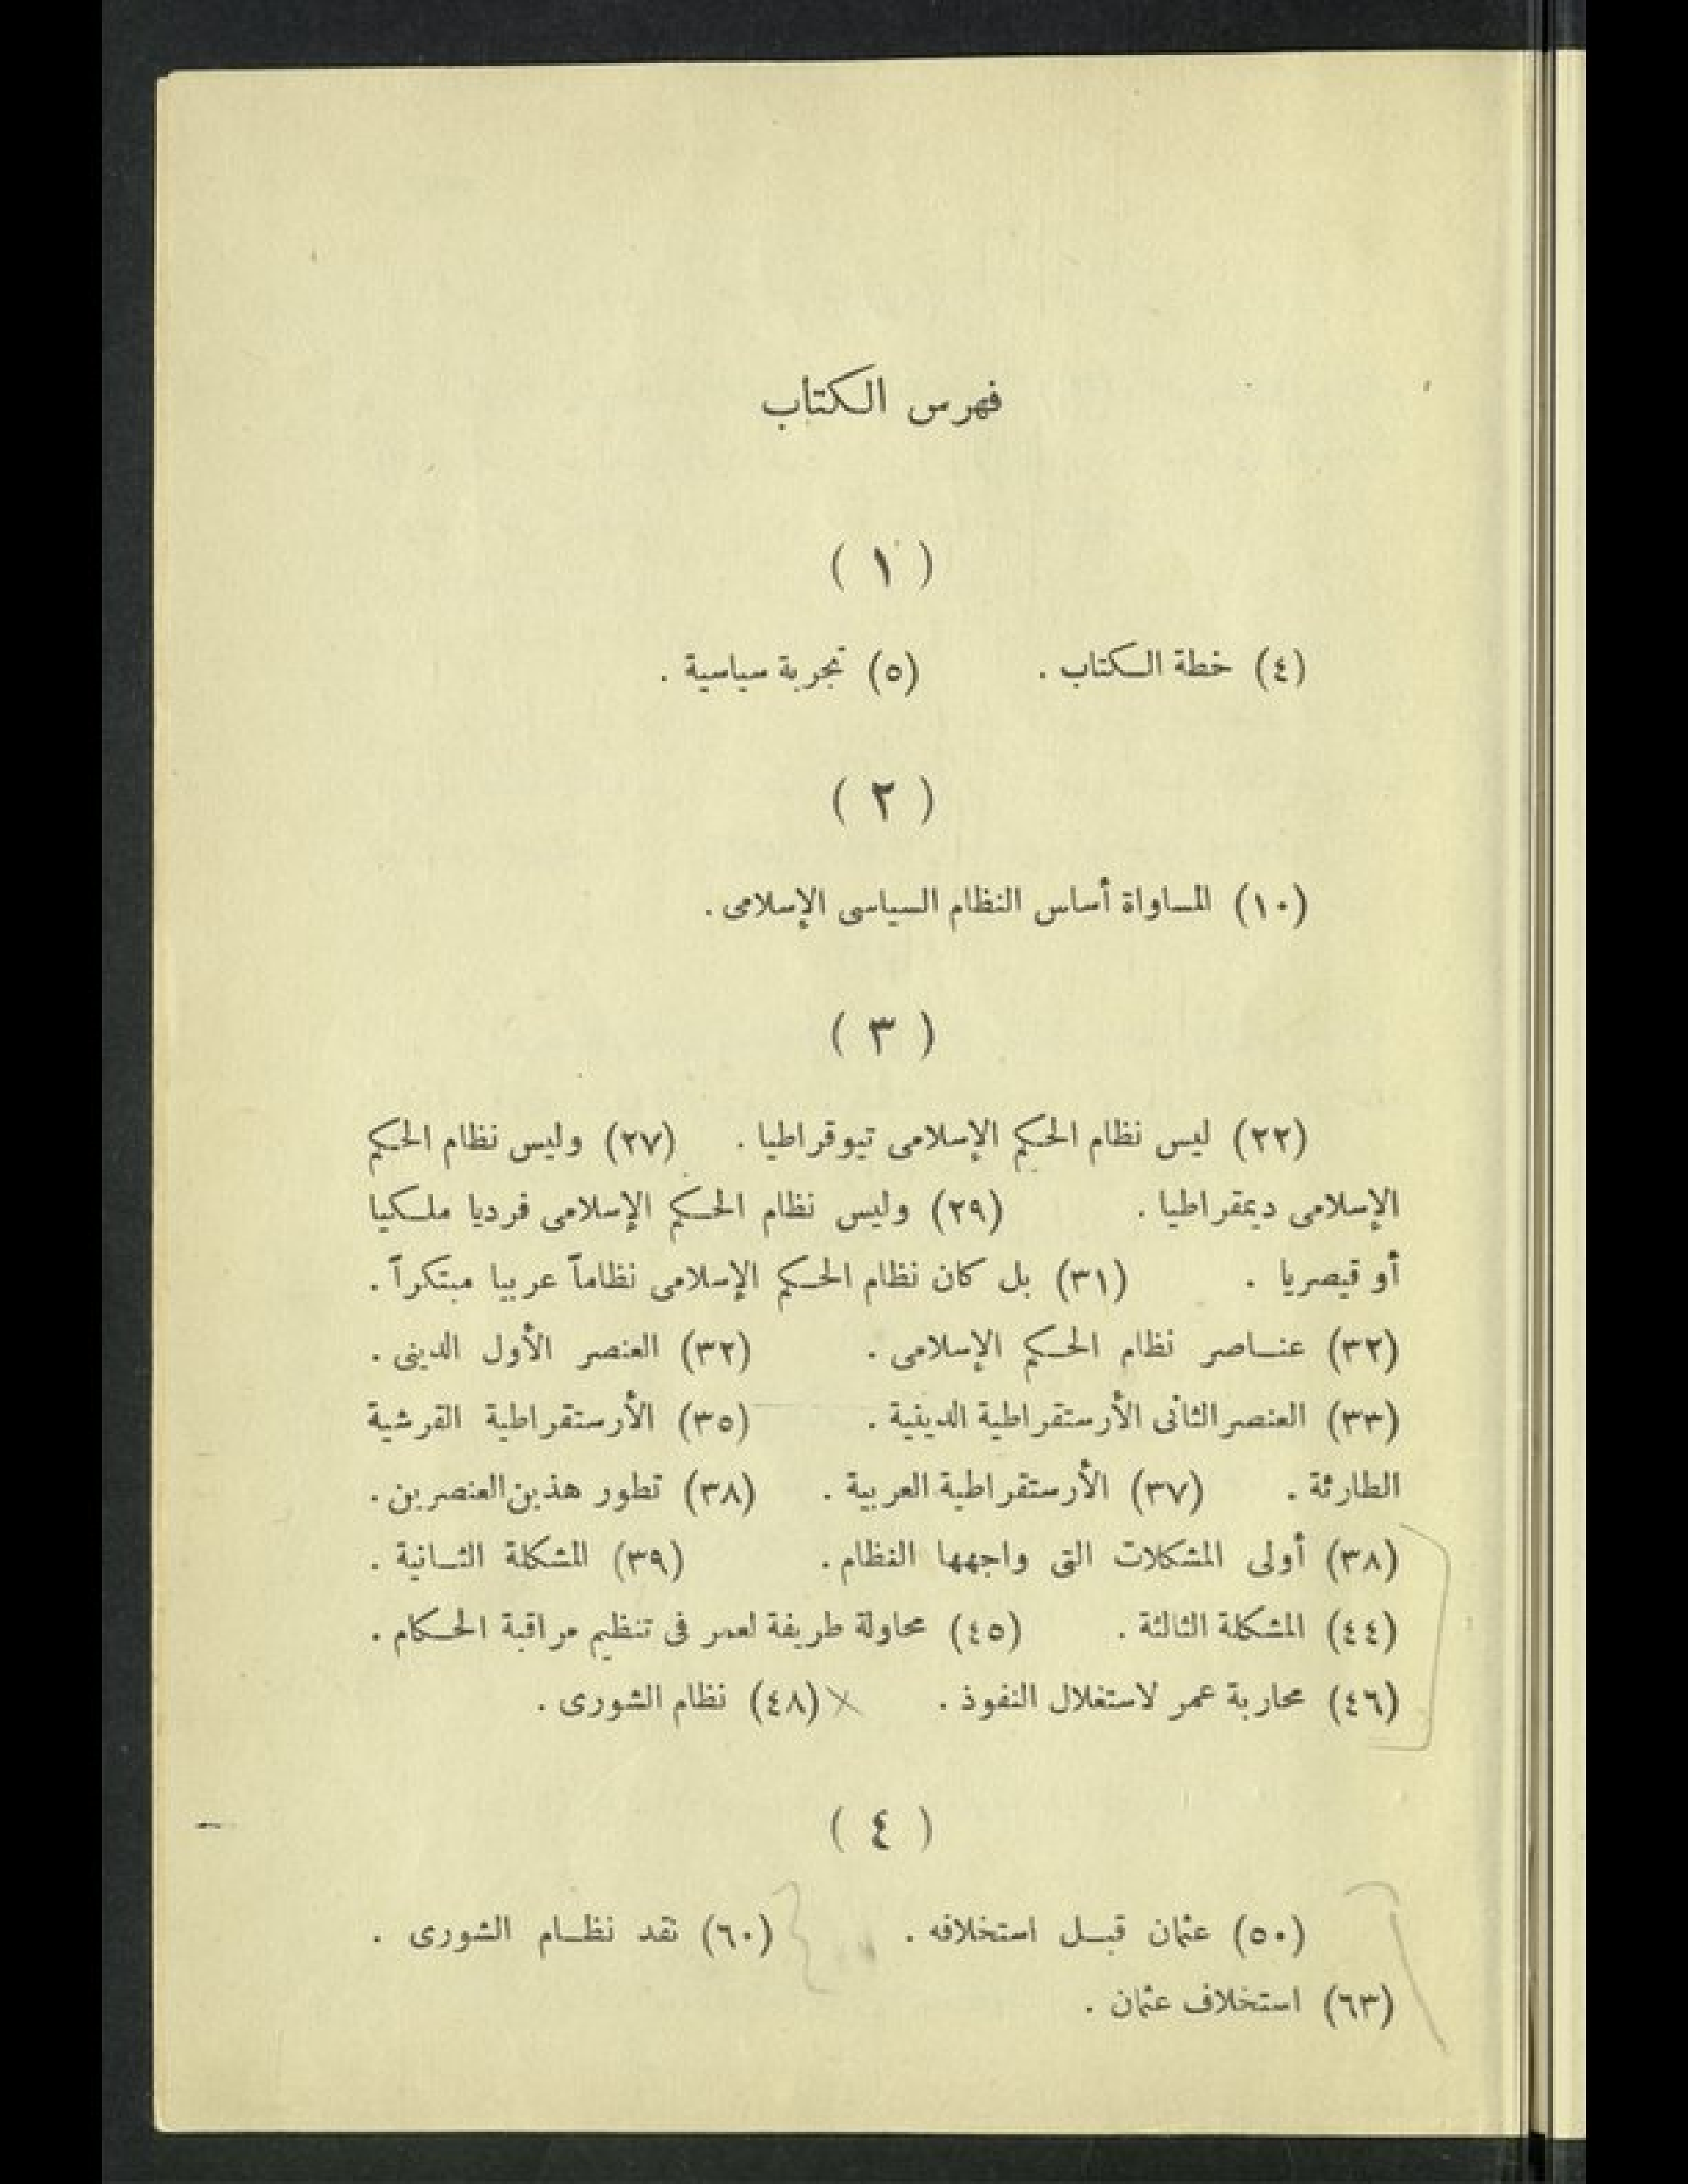 فهرس الكتاب
( ١ )
(٤) خطة الكتاب . (٥) تجربة سياسية .
( ٢ )
(١٠) المساواة أساس النظام السياسى الإسلامى .
( ٣ )
(٢٢) ليس نظام الحكم الإسلامى تيوقراطيا . (٢٧) وليس نظام الحكم
الإسلامى ديمقراطيا . (٢٩) وليس نظام الحكم الإسلامى فرديا ملكيا
أو قيصريا . (٣١) بل كان نظام الحكم الإسلامى نظاماً عربيا مبتكراً .
(٣٢) عناصر نظام الحكم الإسلامى . (٣٢) العنصر الأول الدينى .
(٣٣) العنصر الثانى الأرستقراطية الدينية . (٣٥) الأرستقراطية القرشية
الطارئة . (٣٧) الأرستقراطية العربية . (٣٨) تطور هذين العنصرين .
(٣٨) أولى المشكلات التى واجهها النظام . (٣٩) المشكلة الثانية .
(٤٤) المشكلة الثالثة . (٤٥) محاولة طريفة لعمر فى تنظيم مراقبة الحكام .
(٤٦) محاربة عمر لاستغلال النفوذ . (٤٨) نظام الشورى .
( ٤ )
(٥٠) عثمان قبل استخلافه . (٦٠) نقد نظام الشورى .
(٦٣) استخلاف عثمان .